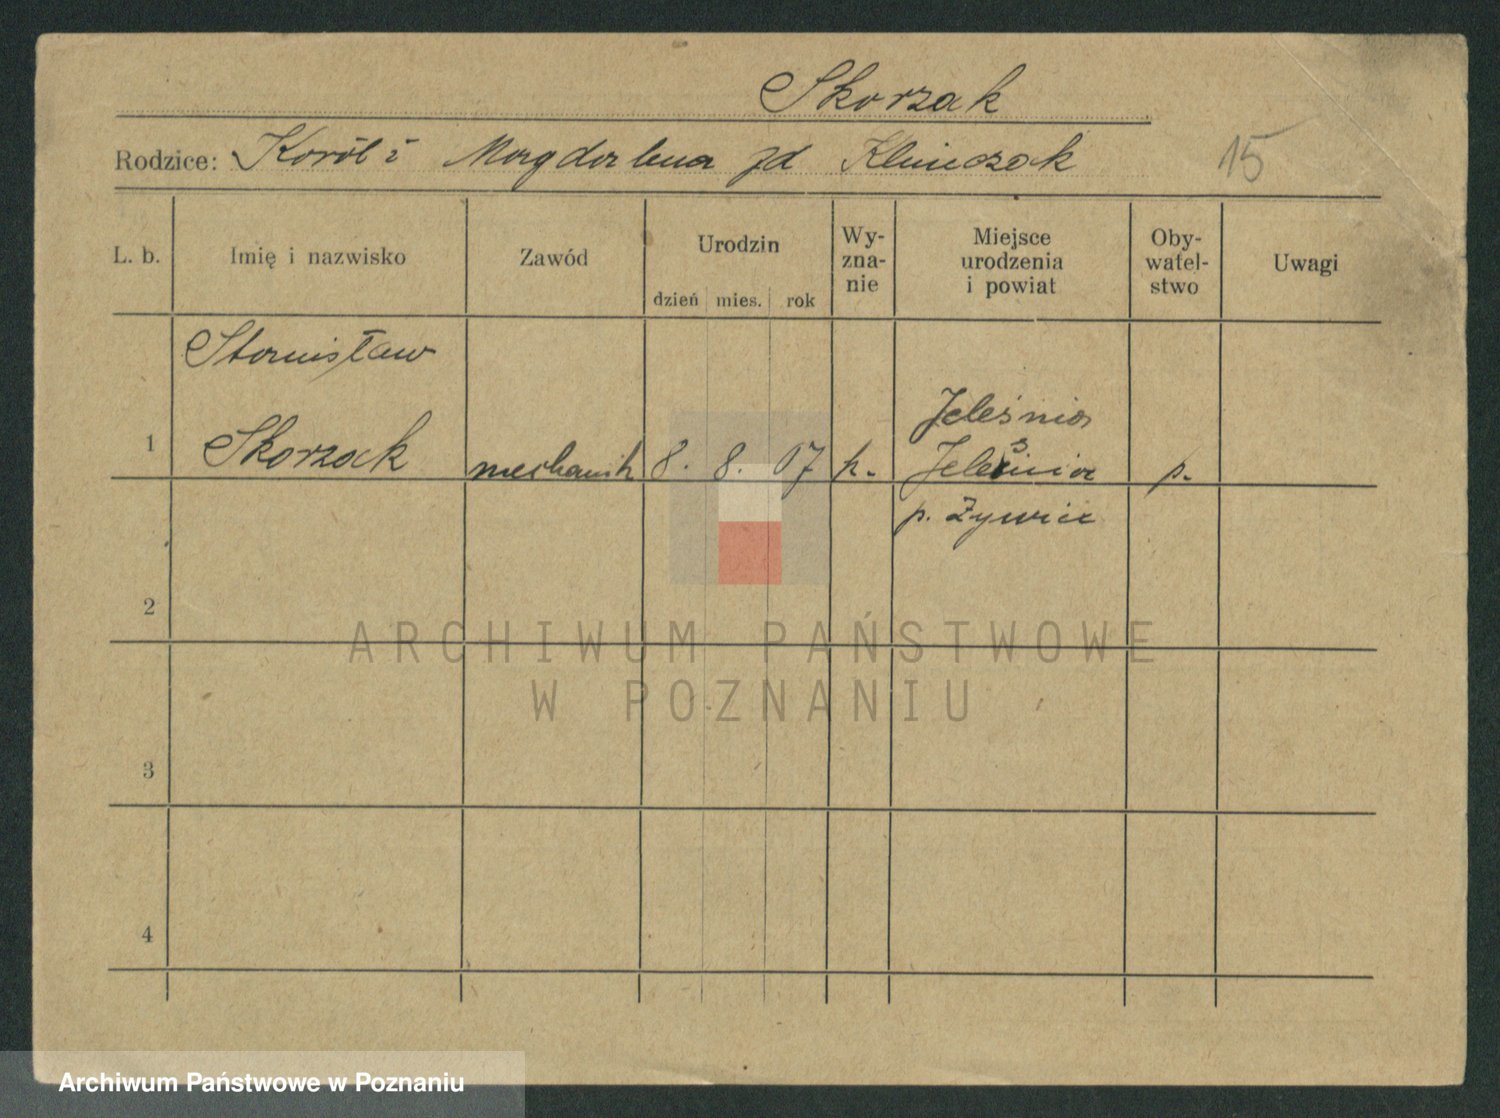 Skorzak
Rodzice: Karól i Magdalena zd Klimczak
15
L. b. Imię i nazwisko Zawód Urodzin dzień mies. rok Wy-zna-nie Miejsce urodzenia i powiat Oby-watel-stwo Uwagi
Stanisław
Jeleśnia
1 Skorzak mechanik 8. 8. 07 k. Jeleśnia p.
p. Żywiec
2
ARCHIWUM PAŃSTWOWE
W POZNANIU
3
4
Archiwum Państwowe w Poznaniu